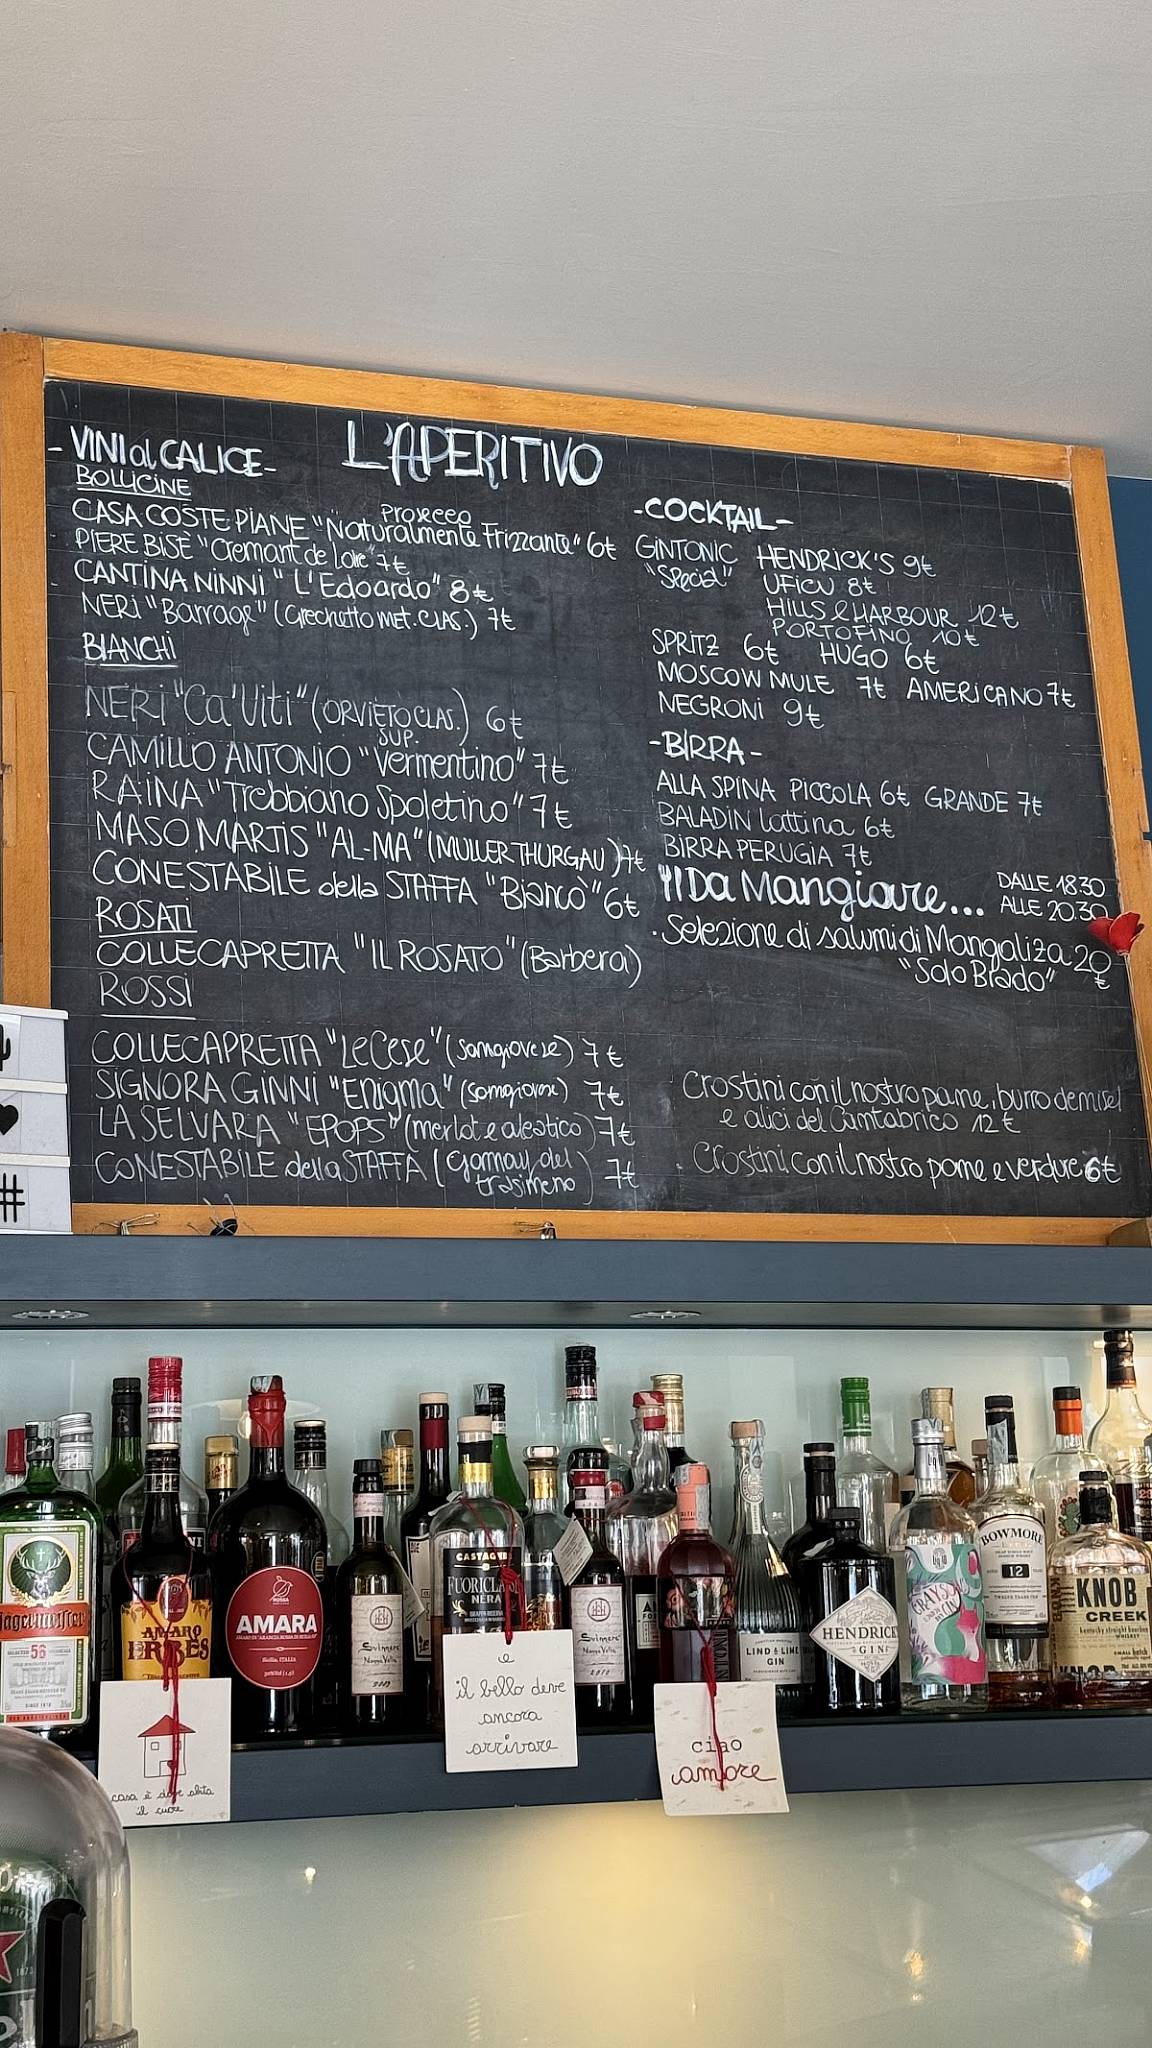 L'APERITIVO
- VINI al CALICE -
BOLLICINE
CASA COSTE PIANE "Prosecco Naturalmente Frizzante" 6€
PIERE BISE "Cremant de Loire" 7€
CANTINA NINNI "L'Edoardo" 8€
NERI "Barrage" (Grechetto MET. CLAS.) 7€
BIANCHI
NERI "Ca' Viti" (ORVIETO CLAS. SUP.) 6€
CAMILLO ANTONIO "Vermentino" 7€
RAINA "Trebbiano Spoletino" 7€
MASO MARTIS "AL-MA" (MULLER THURGAU) 7€
CONESTABILE della STAFFA "Bianco" 6€
ROSATI
COLLECAPRETTA "IL ROSATO" (Barbera)
ROSSI
COLLECAPRETTA "Le Cese" (Sangiovese) 7€
SIGNORA GINNI "Enigma" (Sangiovese) 7€
LA SELVARA "EPOPS" (merlot e aleatico) 7€
CONESTABILE della STAFFA (Gamay del trasimeno) 7€
- COCKTAIL -
GINTONIC HENDRICK'S 9€
"Special" UFICU 8€
HILLS & HARBOUR 12€
PORTOFINO 10€
SPRITZ 6€ HUGO 6€
MOSCOW MULE 7€ AMERICANO 7€
NEGRONI 9€
- BIRRA -
ALLA SPINA PICCOLA 6€ GRANDE 7€
BALADIN lattina 6€
BIRRA PERUGIA 7€
Da Mangiare... DALLE 18.30
ALLE 20.30
· Selezione di salumi di Mangaliza 20€
"Solo Brado"
Crostini con il nostro pane, burro demisel
e alici del Cantabrico 12€
· Crostini con il nostro pane e verdure 6€
#
Jägermeister
56
AMARO
EROES
ROSSA
AMARA
Sicilia, ITALIA
CASTAGNER
FUORICLASSE
NERA
LIND & LIME
GIN
HENDRICK'S
GIN
BOWMORE
12
KNOB
CREEK
casa è dove abita
il cuore
e
il bello deve
ancora
arrivare
ciao
amore